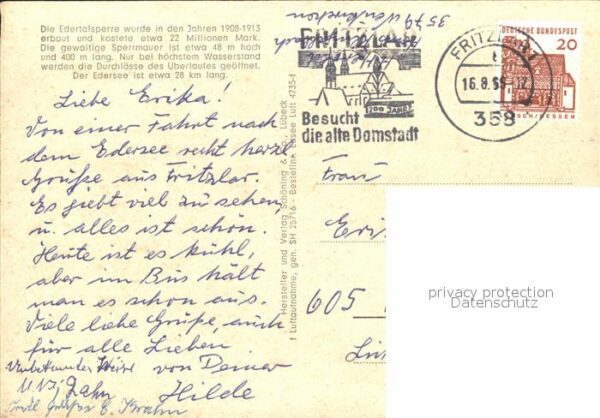 Die Edertalsperre wurde in den Jahren 1908-1913
erbaut und kostete etwa 22 Millionen Mark.
Die gewaltige Sperrmauer ist etwa 48 m hoch
und 400 m lang. Nur bei höchstem Wasserstand
werden die Durchlässe des Überlaufes geöffnet.
Der Edersee ist etwa 28 km lang.
Liebe Erika!
Von einer Fahrt nach
dem Edersee recht herzl.
Grüße aus Fritzlar.
Es giebt viel zu sehen,
u. alles ist schön.
Heute ist es kühl,
aber im Bus hält
man es schon aus.
Viele liebe Grüße, auch
für alle Lieben
von Deiner
Hilde
Unbekannter Weise
Zahn
Hersteller und Verlag Schöning & Co., Lübeck
Luftaufnahme, gen. SH 25/16 - Bestellnr. Essee Luft 4735-f
3579
FRITZLAR
1200 JAHRE
Besucht
die alte Domstadt
FRITZLAR
16.8.
358
DEUTSCHE BUNDESPOST
20
LORSCH/HESSEN
Frau
605
privacy protection
Datenschutz